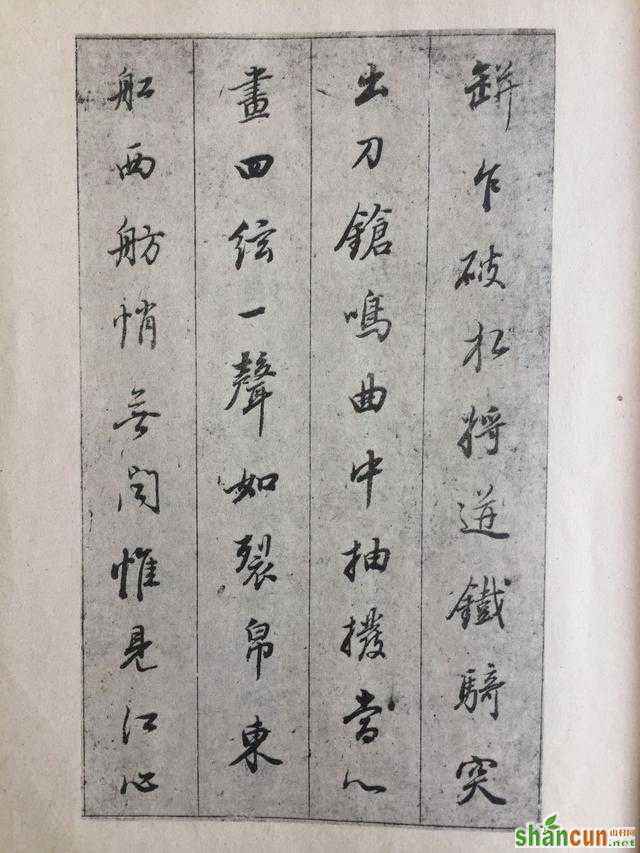 缾乍破水漿迸鐵騎突
出刀鎗鳴曲中抽撥當心
畫四絃一聲如裂帛東
船西舫悄無聞惟見江心
shancun 山村网
.net